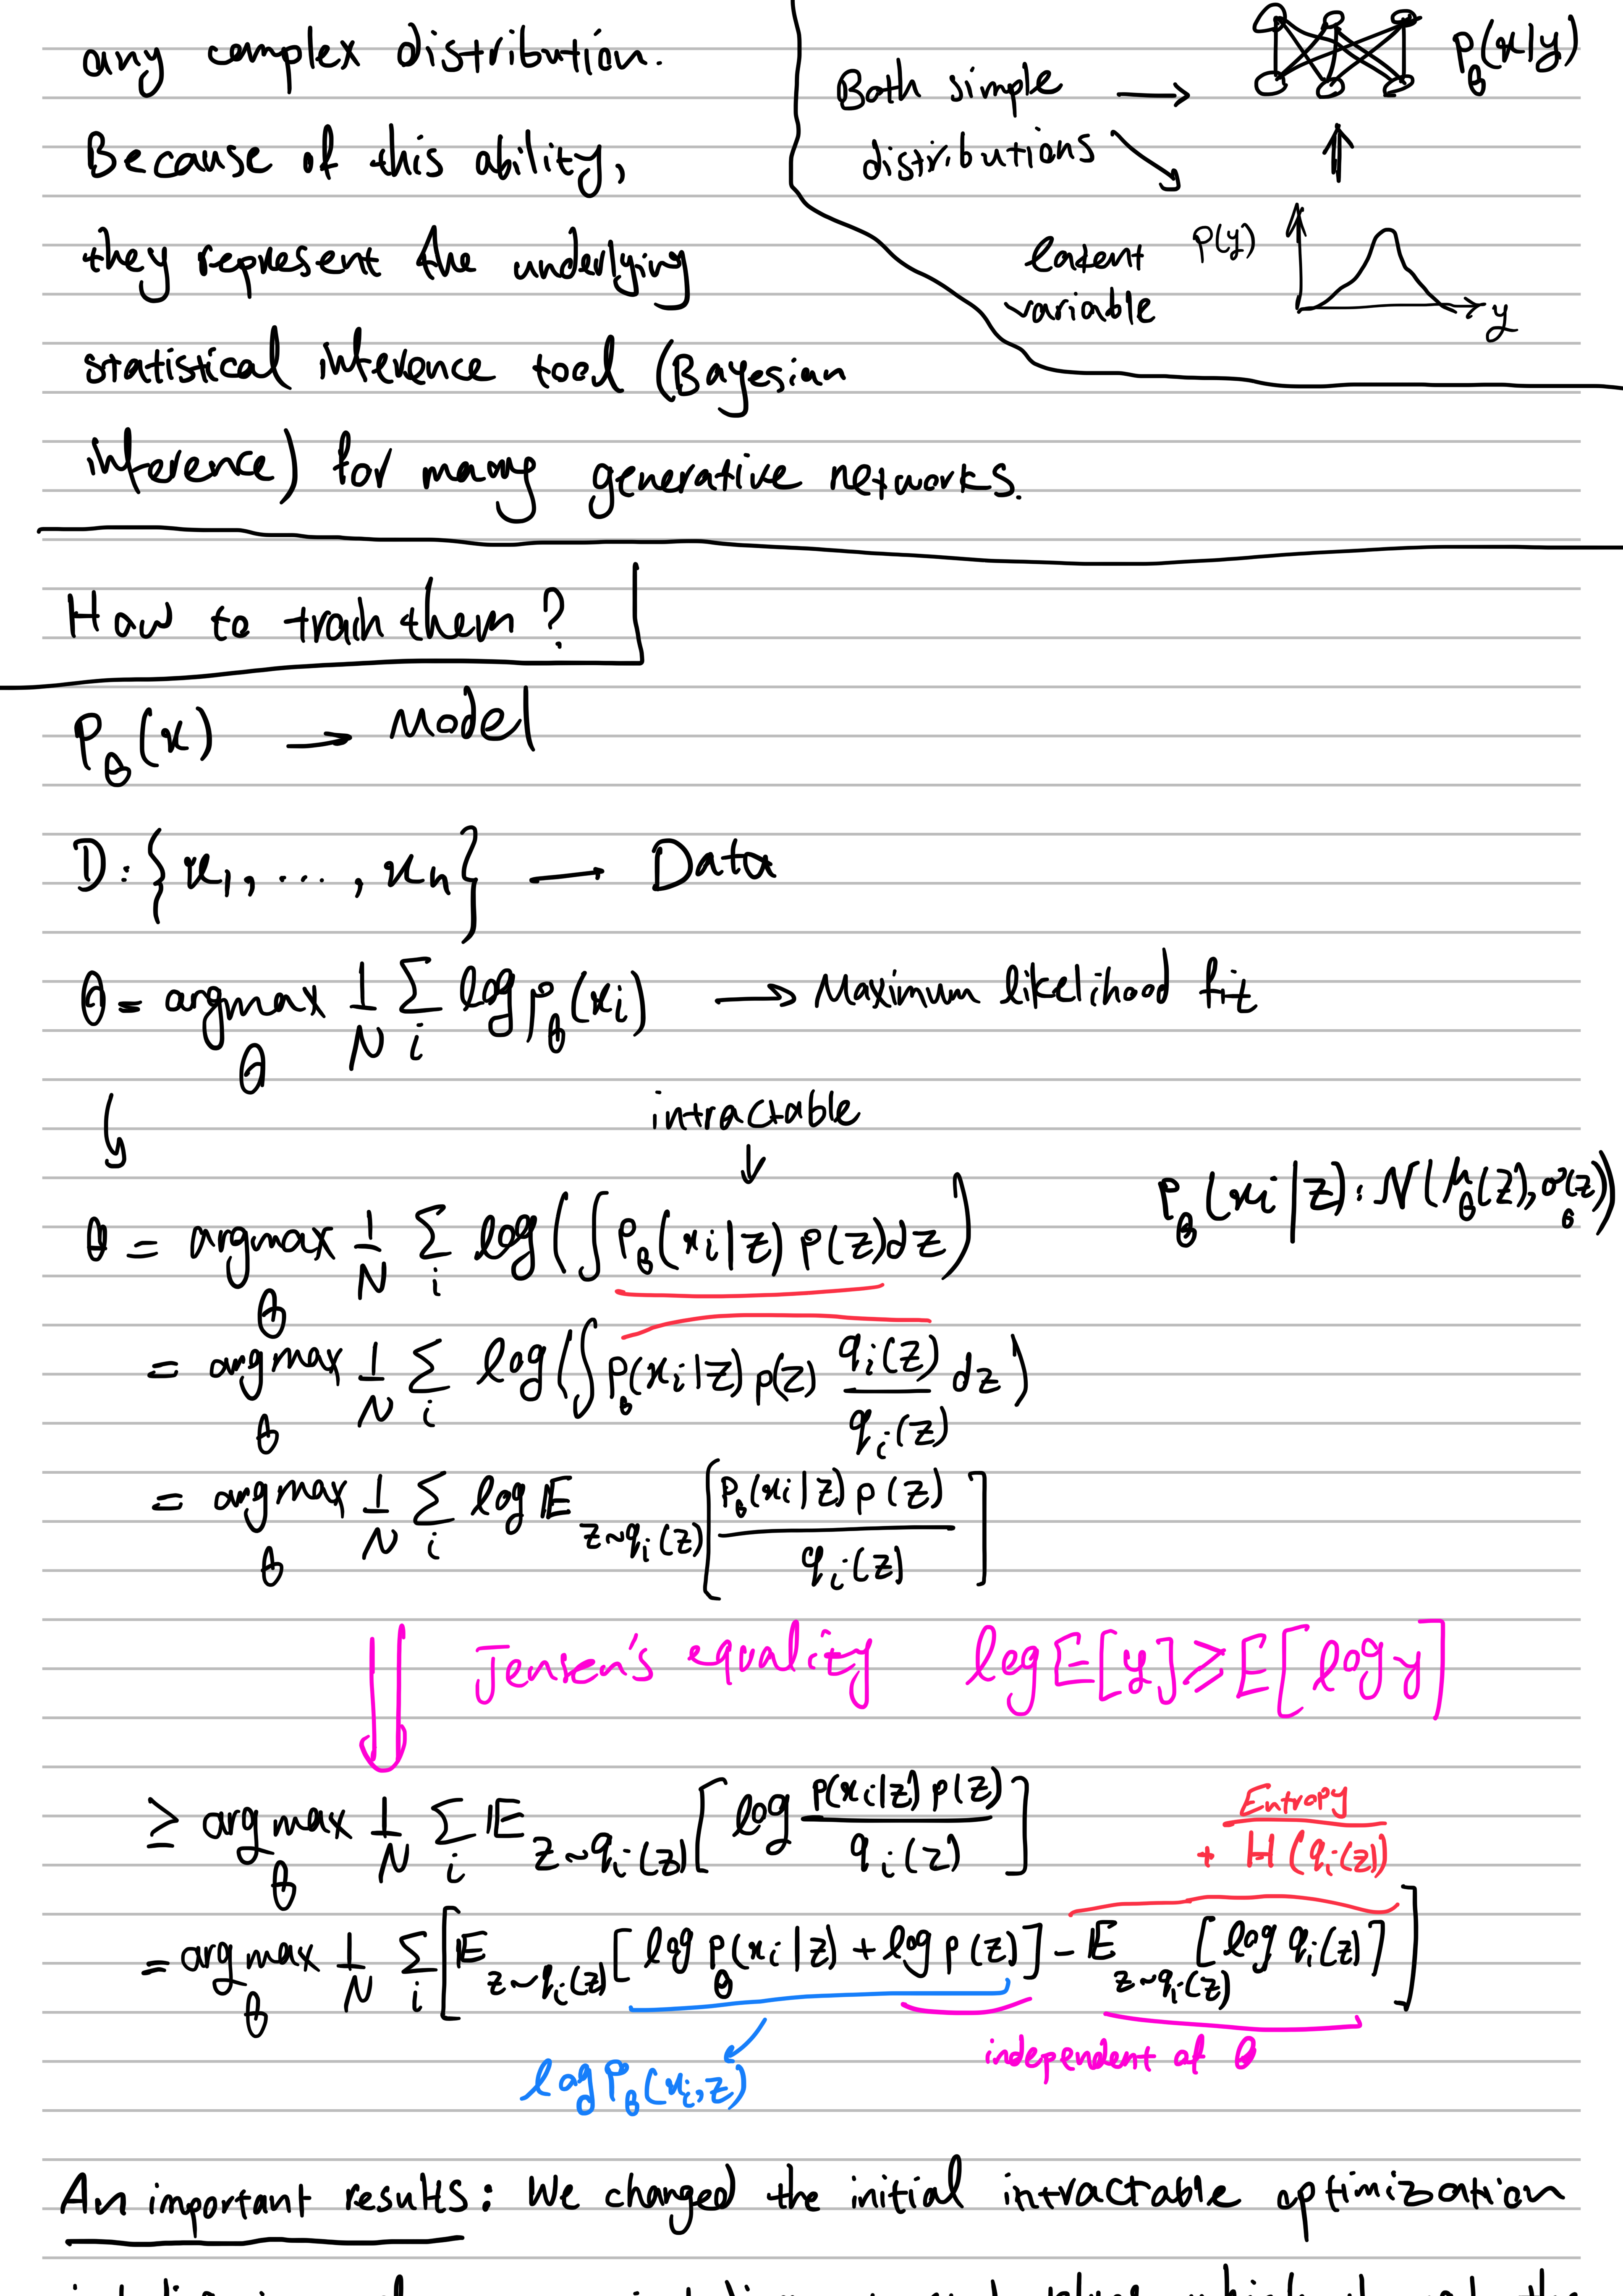 any complex distribution.
Because of this ability,
they represent the underlying
statistical inference tool (Bayesian
inference) for many generative networks.
Both simple → p_θ(x|y)
distributions
latent
variable
P(y)
y
How to train them?
P_θ(x) → Model
D: {x_1, ..., x_n} → Data
θ = argmax_θ 1/N Σ_i log p_θ(x_i) → Maximum likelihood fit
intractable
↓
θ = argmax_θ 1/N Σ_i log(∫ p_θ(x_i|z) p(z) dz)
P_θ(x_i|z): N(μ_θ(z), σ_θ(z))
= argmax_θ 1/N Σ_i log(∫ p_θ(x_i|z) p(z) q_i(z)/q_i(z) dz)
= argmax_θ 1/N Σ_i log E_{z~q_i(z)} [p_θ(x_i|z) p(z) / q_i(z)]
Jensen's equality log E[y] ≥ E[log y]
≥ argmax_θ 1/N Σ_i E_{z~q_i(z)} [log p(x_i|z) p(z) / q_i(z)]
Entropy
+ H(q_i(z))
= argmax_θ 1/N Σ_i [E_{z~q_i(z)} [log p_θ(x_i|z) + log p(z)] - E_{z~q_i(z)} [log q_i(z)]]
independent of θ
log P_θ(x_i, z)
An important results: We changed the initial intractable optimization